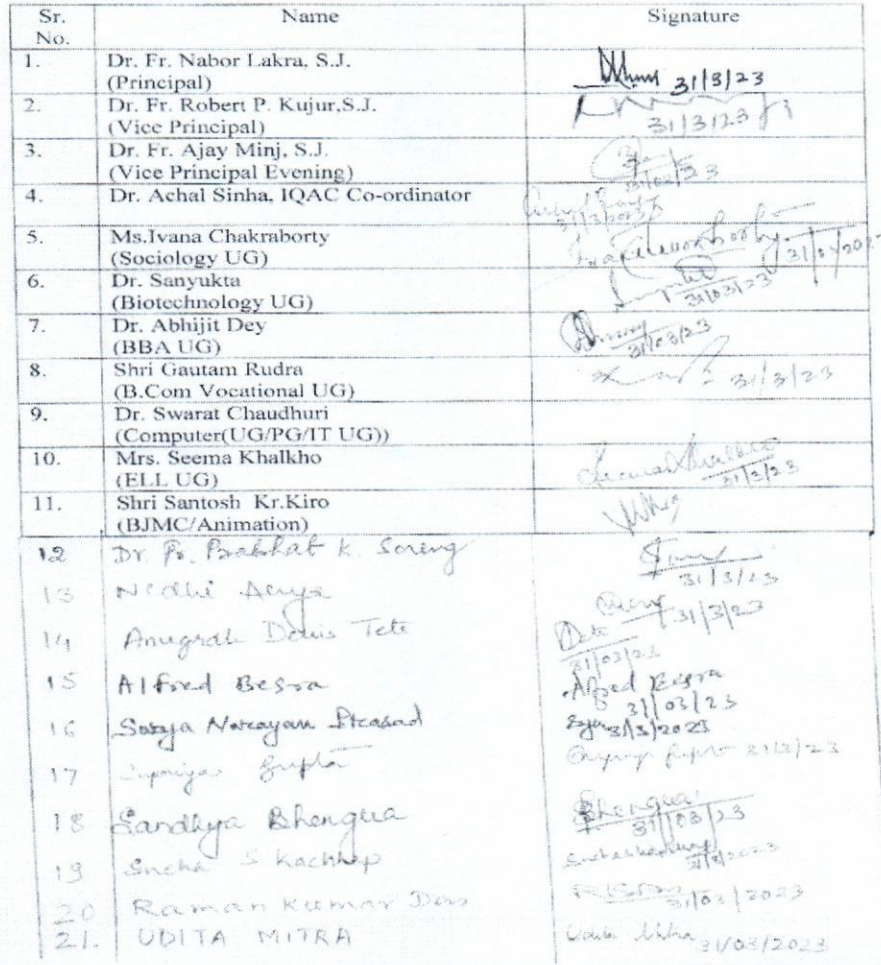 Sr. No. Name Signature
1. Dr. Fr. Nabor Lakra, S.J.
(Principal) 31/3/23
2. Dr. Fr. Robert P. Kujur,S.J.
(Vice Principal) 31/3/23
3. Dr. Fr. Ajay Minj, S.J.
(Vice Principal Evening) 31/03/23
4. Dr. Achal Sinha, IQAC Co-ordinator
31/3/2023
5. Ms.Ivana Chakraborty
(Sociology UG) 31/03/2023
6. Dr. Sanyukta
(Biotechnology UG) 31/03/23
7. Dr. Abhijit Dey
(BBA UG) 31/03/23
8. Shri Gautam Rudra
(B.Com Vocational UG) 31/3/23
9. Dr. Swarat Chaudhuri
(Computer(UG/PG/IT UG))
10. Mrs. Seema Khalkho
(ELL UG) 31/3/23
11. Shri Santosh Kr.Kiro
(BJMC/Animation)
12 Dr. Fr. Prabhat K. Soreng
31/3/23
13 Nidhi Arya 31/3/23
14 Anugrah Davis Tete
31/03/23
15 Alfred Besra Alfred Besra
31/03/23
16 Surya Narayan Prasad 31/3/2023
17 Supriya Gupta 31/3/23
18 Sandhya Bhengua Bhengua
31/03/23
19 Sneha S Kachhap
31/3/2023
20 Raman Kumar Das
31/03/2023
21. UDITA MITRA Udita Mitra 31/03/2023